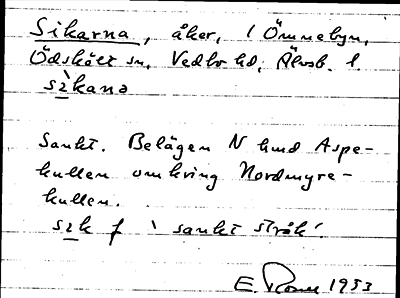 Sikarna, åker, i Ömnebyn,
Ödskölt sn, Vedbo hd, Älvsb. l.
sìkana
Sankt. Belägen N hmd Aspe-
kullen omkring Nordmyre-
kullen.
sik f 'sankt stråk'.
E. 1933